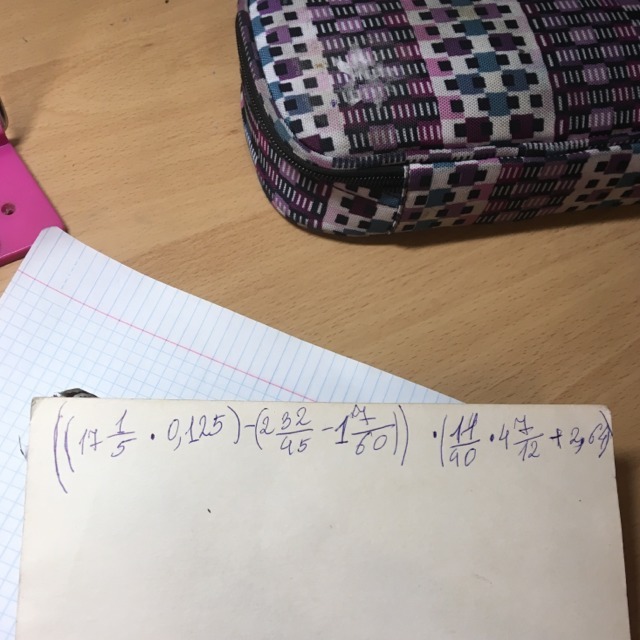 ((17 1/5 · 0,125) - (2 32/45 - 1 17/60)) · (11/40 · 4 7/12 + 2,64)